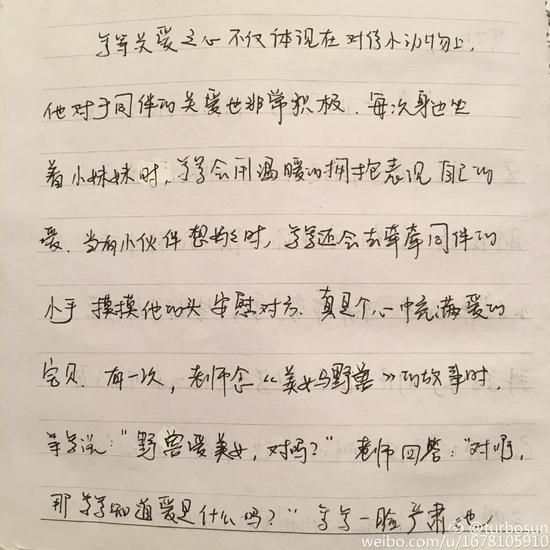 关爱之心不仅体现在对待小动物上,
他对于同伴的关爱也非常积极. 每次身边坐
着小妹妹时, 会用温暖的拥抱表现自己的
爱. 当有小伙伴想妈妈时, 还会去牵牵同伴的
小手 摸摸他的头 安慰对方. 真是个心中充满爱的
宝贝. 有一次, 老师念《美女与野兽》的故事时,
说:“野兽爱美女, 对吗?” 老师回答:“对啊,
那 知道爱是什么吗?” 一脸严肃地
@turbosun
weibo.com/u/1678105910